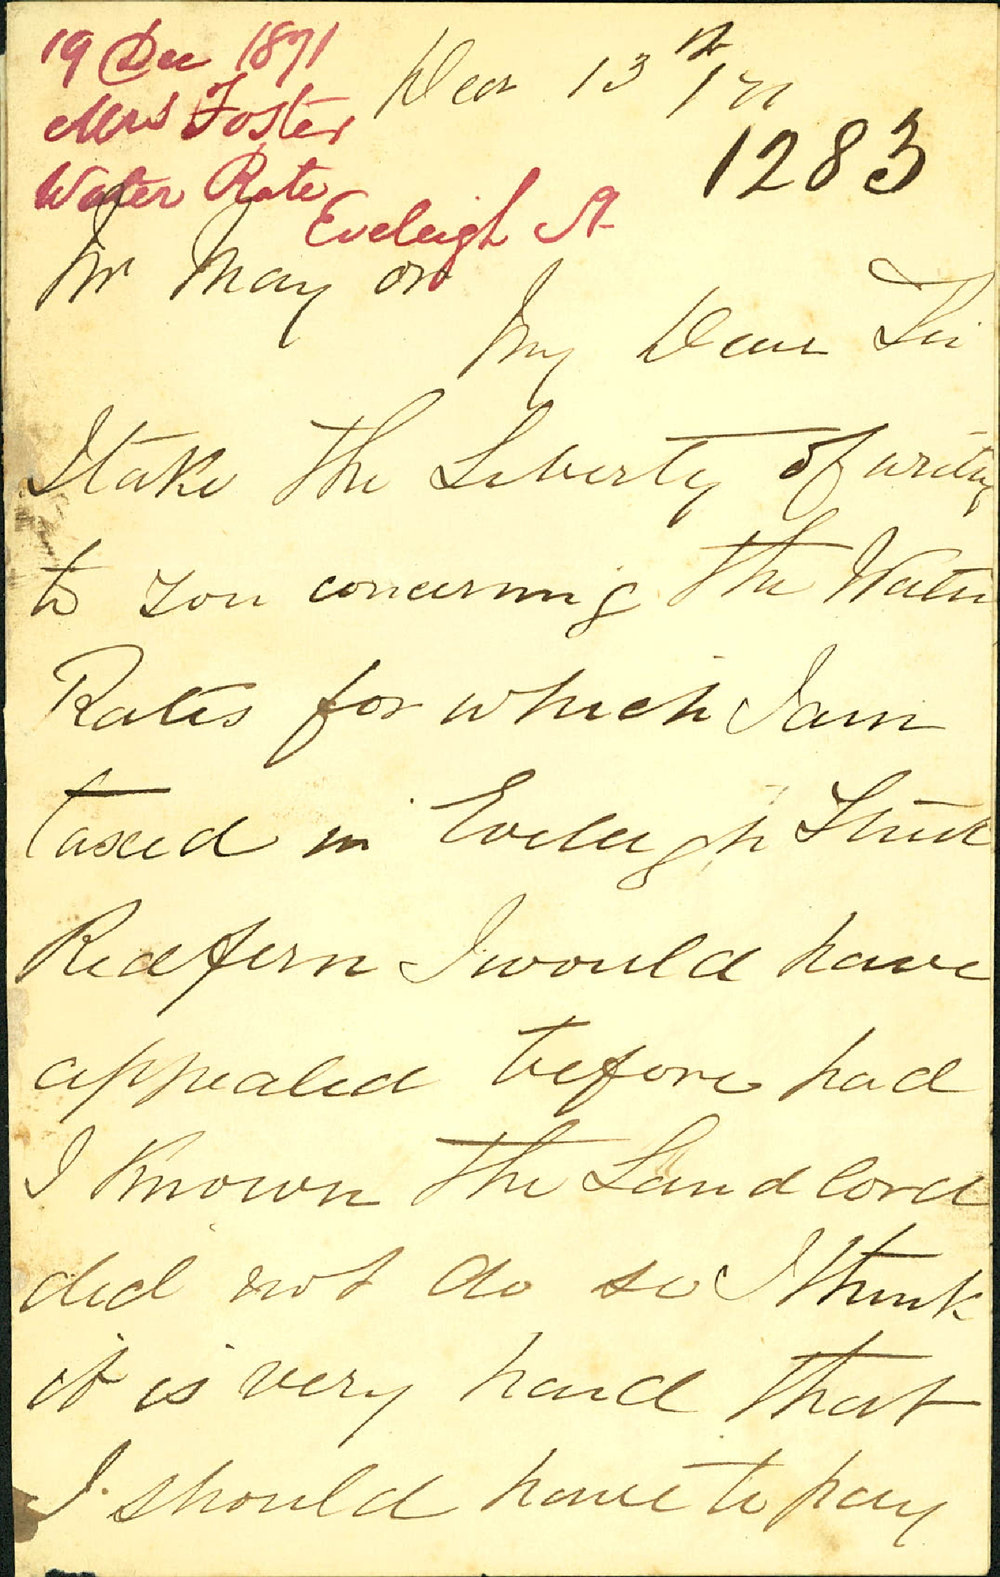 19 Dec 1871
Mrs Foster
Water Rate
Eveleigh St
Dear 13th /71
1283
Mr Mayor
My Dear Sir
I take the Liberty of writing
to you concerning the Water
Rates for which I am
taxed in Eveleigh Street
Redfern I would have
appealed before had
I known the Landlord
did not do so I think
it is very hard that
I should have to pay